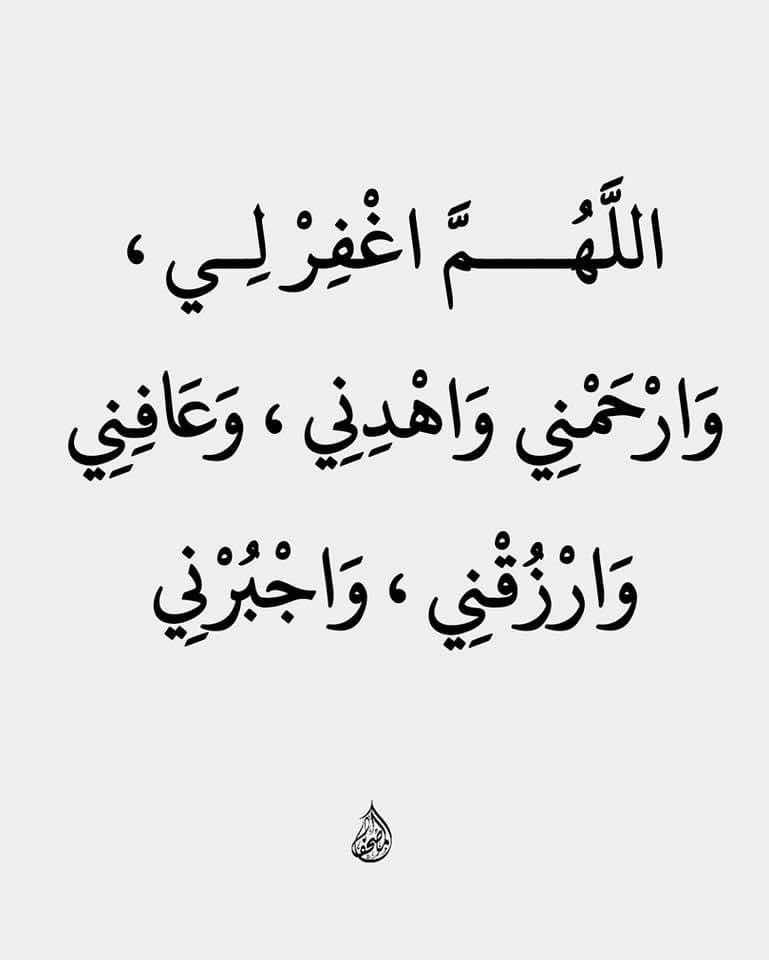 اللَّهُـمَّ اغْفِرْ لِـي ،
وَارْحَمْنِي وَاهْدِنِي ، وَعَافِنِي
وَارْزُقْنِي ، وَاجْبُرْنِي